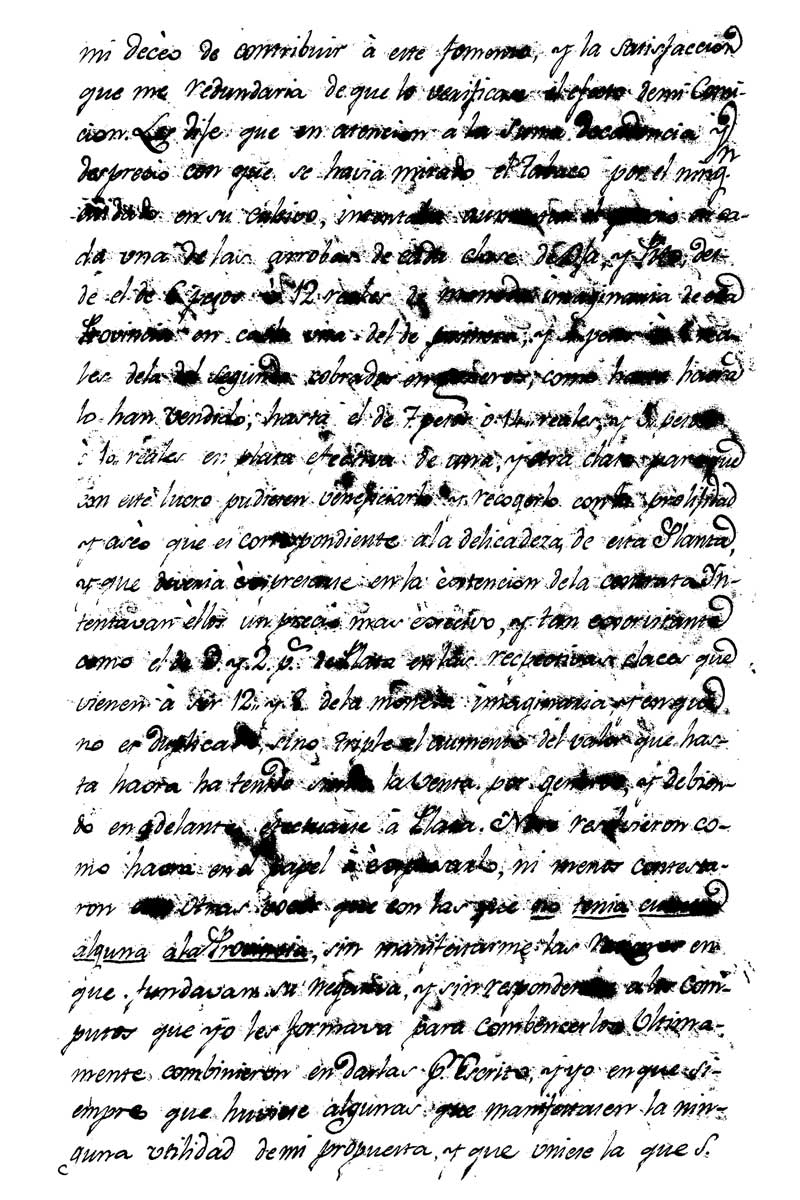 mi decèo de contribuir à este fomento, y la satisfaccion
que me redundaria de que lo verificase el efecto de mi Comi-
cion. Les dije que en atencion a la suma decadencia y
desprecio con que se havia mirado el Tabaco por el ning.n
en su cultivo, intentaba aumentar el precio en ca-
da una de las arrobas de cada clase de Oja, y Pito, des-
de el de 6 pesos ò 12 reales de moneda imaginaria de esta
Provincia en cada una del de primera, y
les dela del segunda cobrados en generos, como hasta haora
lo han vendido, hasta el de 7 pesos ò 14 reales, y 5 pesos
ò 10 reales en plata efectiva de una, y otra clase para que
con este lucro pudiesen beneficiarlo y recogerlo con la prolijidad
y aseò que es correspondiente a la delicadeza de esta Planta,
y que deveria èxpresarse en la èxtencion dela contrata In-
tentavan èllos un precio mas èxcesivo, y tan exorvitante
como el de 3 y 2 p.s de Plata en las respectivas claces que
vienen à ser 12 y 8 dela moneda imaginaria y en que
no es duplicado, sino triple el aumento del valor que has-
ta haora ha tenido siendo la venta por generos, y debien-
do en adelante efectuarse à Plata. Ni se resolvieron co-
mo haora en el papel à èxpresarlo, ni menos contesta-
ron otras voces que con las que no tenia cuenta
alguna à la Provincia, sin manifestarme las razones en
que fundavan su negativa, y sin responder a los Com-
putos que yo les formava para combencerlos Ultima-
mente combinieron en darlas p.r Escrito, y yo en que si-
empre que huviese algunas que manifestasen la nin-
guna utilidad de mi propuesta, y que uniese la que S.